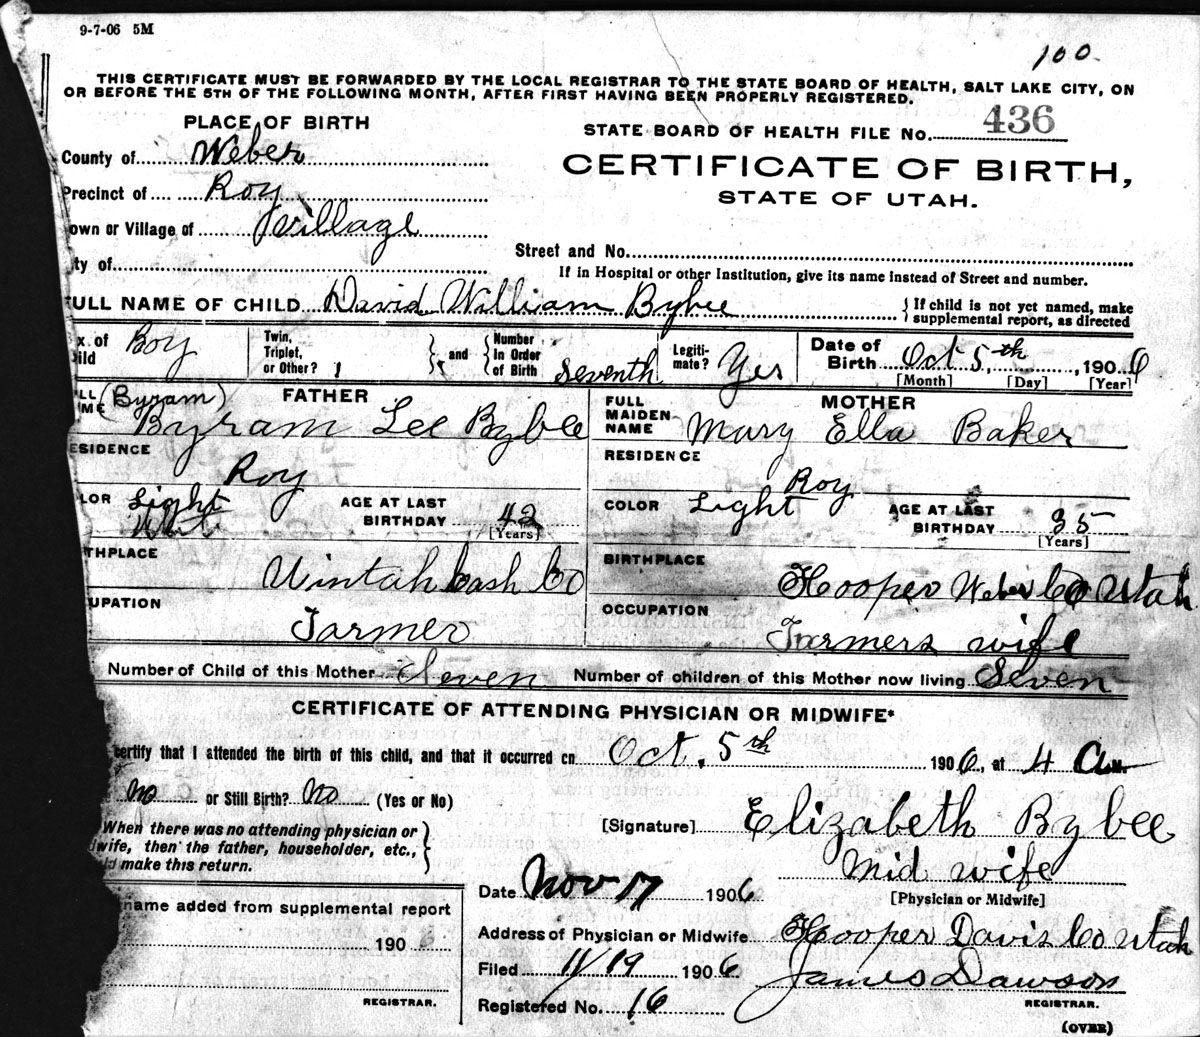 9-7-06 5M
100.
THIS CERTIFICATE MUST BE FORWARDED BY THE LOCAL REGISTRAR TO THE STATE BOARD OF HEALTH, SALT LAKE CITY, ON
OR BEFORE THE 5TH OF THE FOLLOWING MONTH, AFTER FIRST HAVING BEEN PROPERLY REGISTERED.
PLACE OF BIRTH
STATE BOARD OF HEALTH FILE No. 436
County of Weber
CERTIFICATE OF BIRTH,
Precinct of Roy
STATE OF UTAH.
own or Village of Village
Street and No.
ity of
If in Hospital or other Institution, give its name instead of Street and number.
ULL NAME OF CHILD David William Bybee { If child is not yet named, make supplemental report, as directed
x of ild Boy Twin, Triplet, or Other? 1 } and { Number In Order of Birth Seventh Legiti- mate? Yes Date of Birth Oct 5,th, 1906
[Month] [Day] [Year]
FATHER
LL ME (Byram) Byram Lee Bybee
ESIDENCE Roy
LOR Light AGE AT LAST BIRTHDAY 42
[Years]
THPLACE Uintah Co
UPATION Farmer
MOTHER
FULL MAIDEN NAME Mary Ella Baker
RESIDENCE Roy
COLOR Light AGE AT LAST BIRTHDAY 35
[Years]
BIRTHPLACE Hooper Weber Co Utah
OCCUPATION Farmers wife
Number of Child of this Mother Seven Number of children of this Mother now living Seven
CERTIFICATE OF ATTENDING PHYSICIAN OR MIDWIFE*
certify that I attended the birth of this child, and that it occurred on Oct. 5th 1906, at 4 A.M.
no or Still Birth? No (Yes or No)
When there was no attending physician or
wife, then the father, householder, etc., }
ld make this return.
[Signature] Elizabeth Bybee
Mid wife
[Physician or Midwife]
Date Nov 17 1906
name added from supplemental report
190
REGISTRAR.
Address of Physician or Midwife Hooper Davis Co Utah
Filed 11/19 1906 James Dawson
REGISTRAR.
Registered No. 16
(OVER)